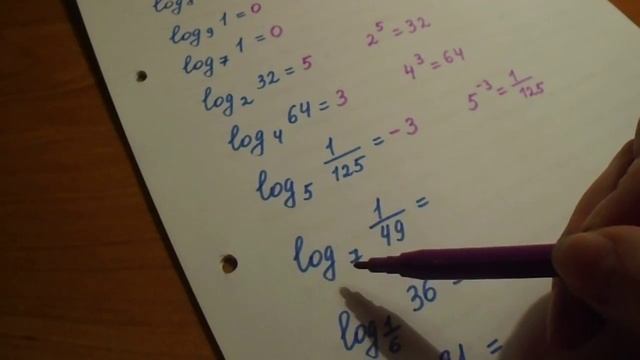 log₉ 1 = 0
log₇ 1 = 0
log₂ 32 = 5 2⁵ = 32
log₄ 64 = 3 4³ = 64
log₅ 1/125 = -3 5⁻³ = 1/125
log₇ 1/49 =
log 1/6 36